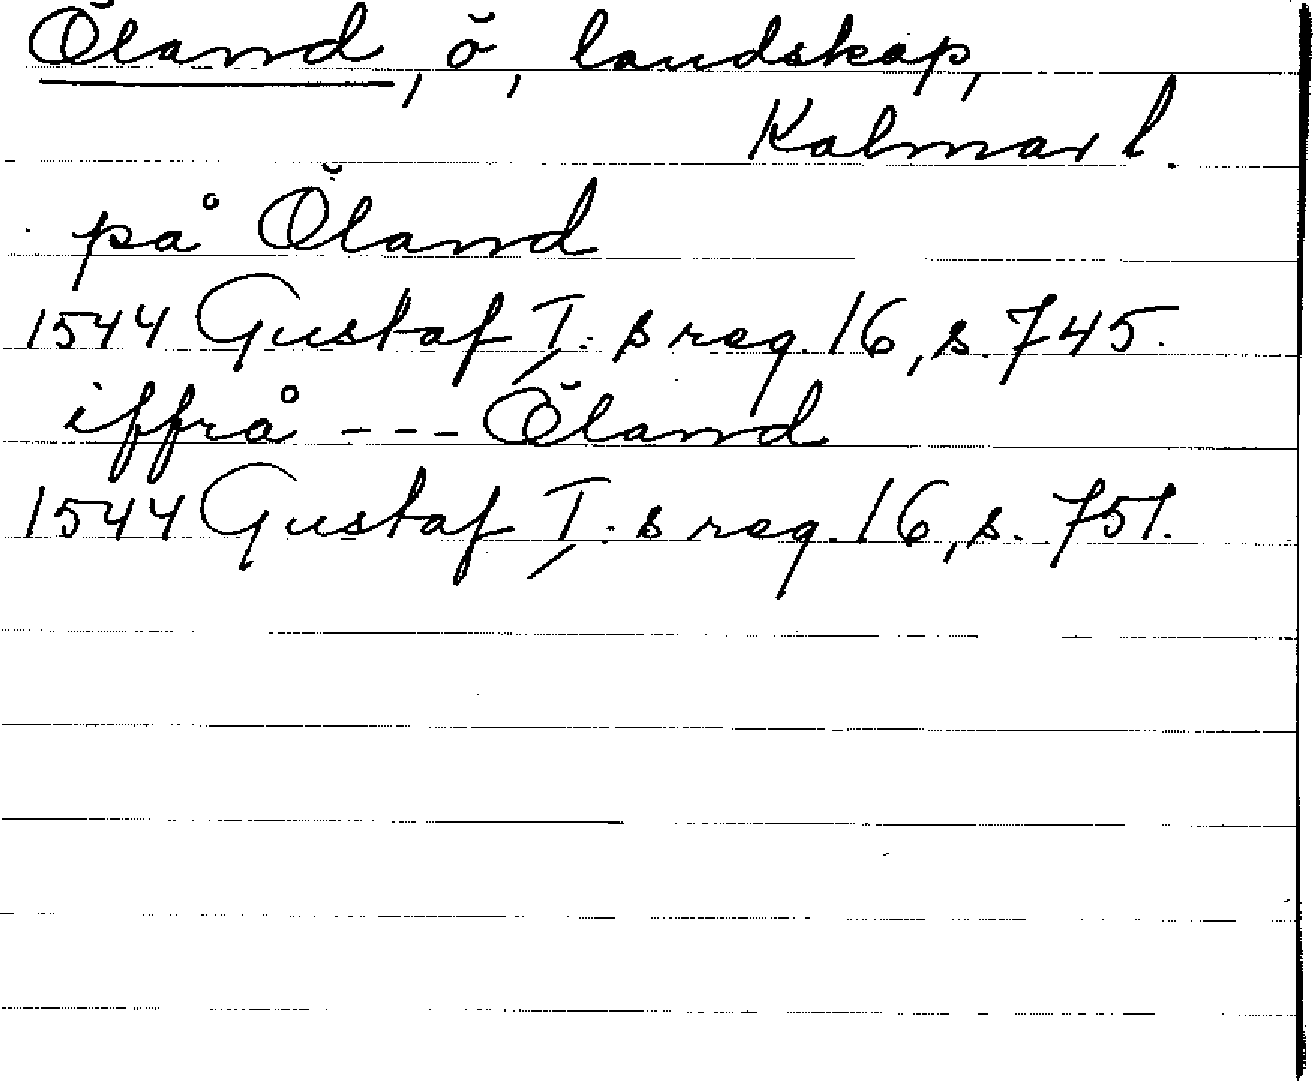 Öland, ö, landskap,
Kalmar l.
på Öland
1544 Gustaf I:s reg. 16, s. 745.
iffrå --- Öland
1544 Gustaf I:s reg. 16, s. 751.